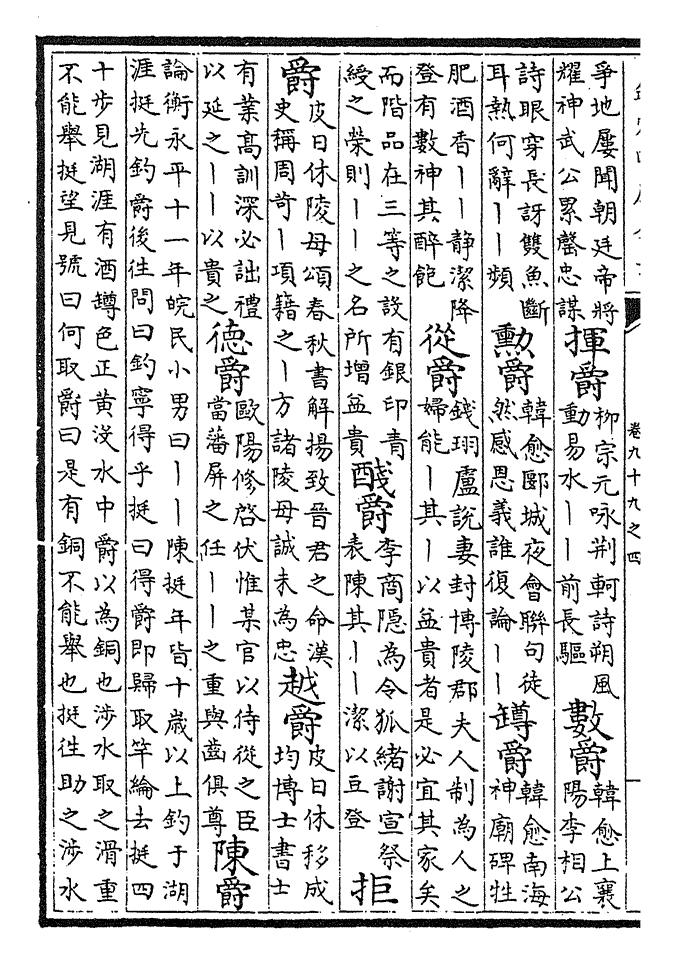 卷九十九之四
爭地屢聞朝廷帝將
耀神武公累罄忠謀
揮爵
柳宗元咏荆軻詩朔風
動易水丨丨前長驅
數爵
韓愈上襄
陽李相公
詩眼穿長訝雙魚斷
耳熱何辭丨丨頻
勳爵
韓愈郾城夜會聯句徒
然感恩義誰復論丨丨
罇爵
韓愈南海
神廟碑牲
肥酒香丨丨靜潔降
登有數神其醉飽
從爵
錢珝盧說妻封博陵郡夫人制為人之
婦能丨其丨以益貴者是必宜其家矣
而階品在三等之設有銀印青
綬之榮則丨丨之名所增益貴
醆爵
李商隱為令狐緒謝宣祭
表陳其丨丨潔以豆登
拒
爵
皮日休陵母頌春秋書解揚致晉君之命漢
史稱周苛丨項籍之丨方諸陵母誠未為忠
越爵
皮日休移成
均博士書士
有業高訓深必詘禮
以延之丨丨以貴之
德爵
歐陽修啓伏惟某官以侍從之臣
當藩屏之任丨丨之重與齒俱尊
陳爵
論衡永平十一年皖民小男曰丨丨陳挺年皆十歲以上釣于湖
涯挺先釣爵後往問曰釣寧得乎挺曰得爵即歸取竿綸去挺四
十步見湖涯有酒罇色正黃沒水中爵以為銅也涉水取之滑重
不能舉挺望見號曰何取爵曰是有銅不能舉也挺往助之涉水